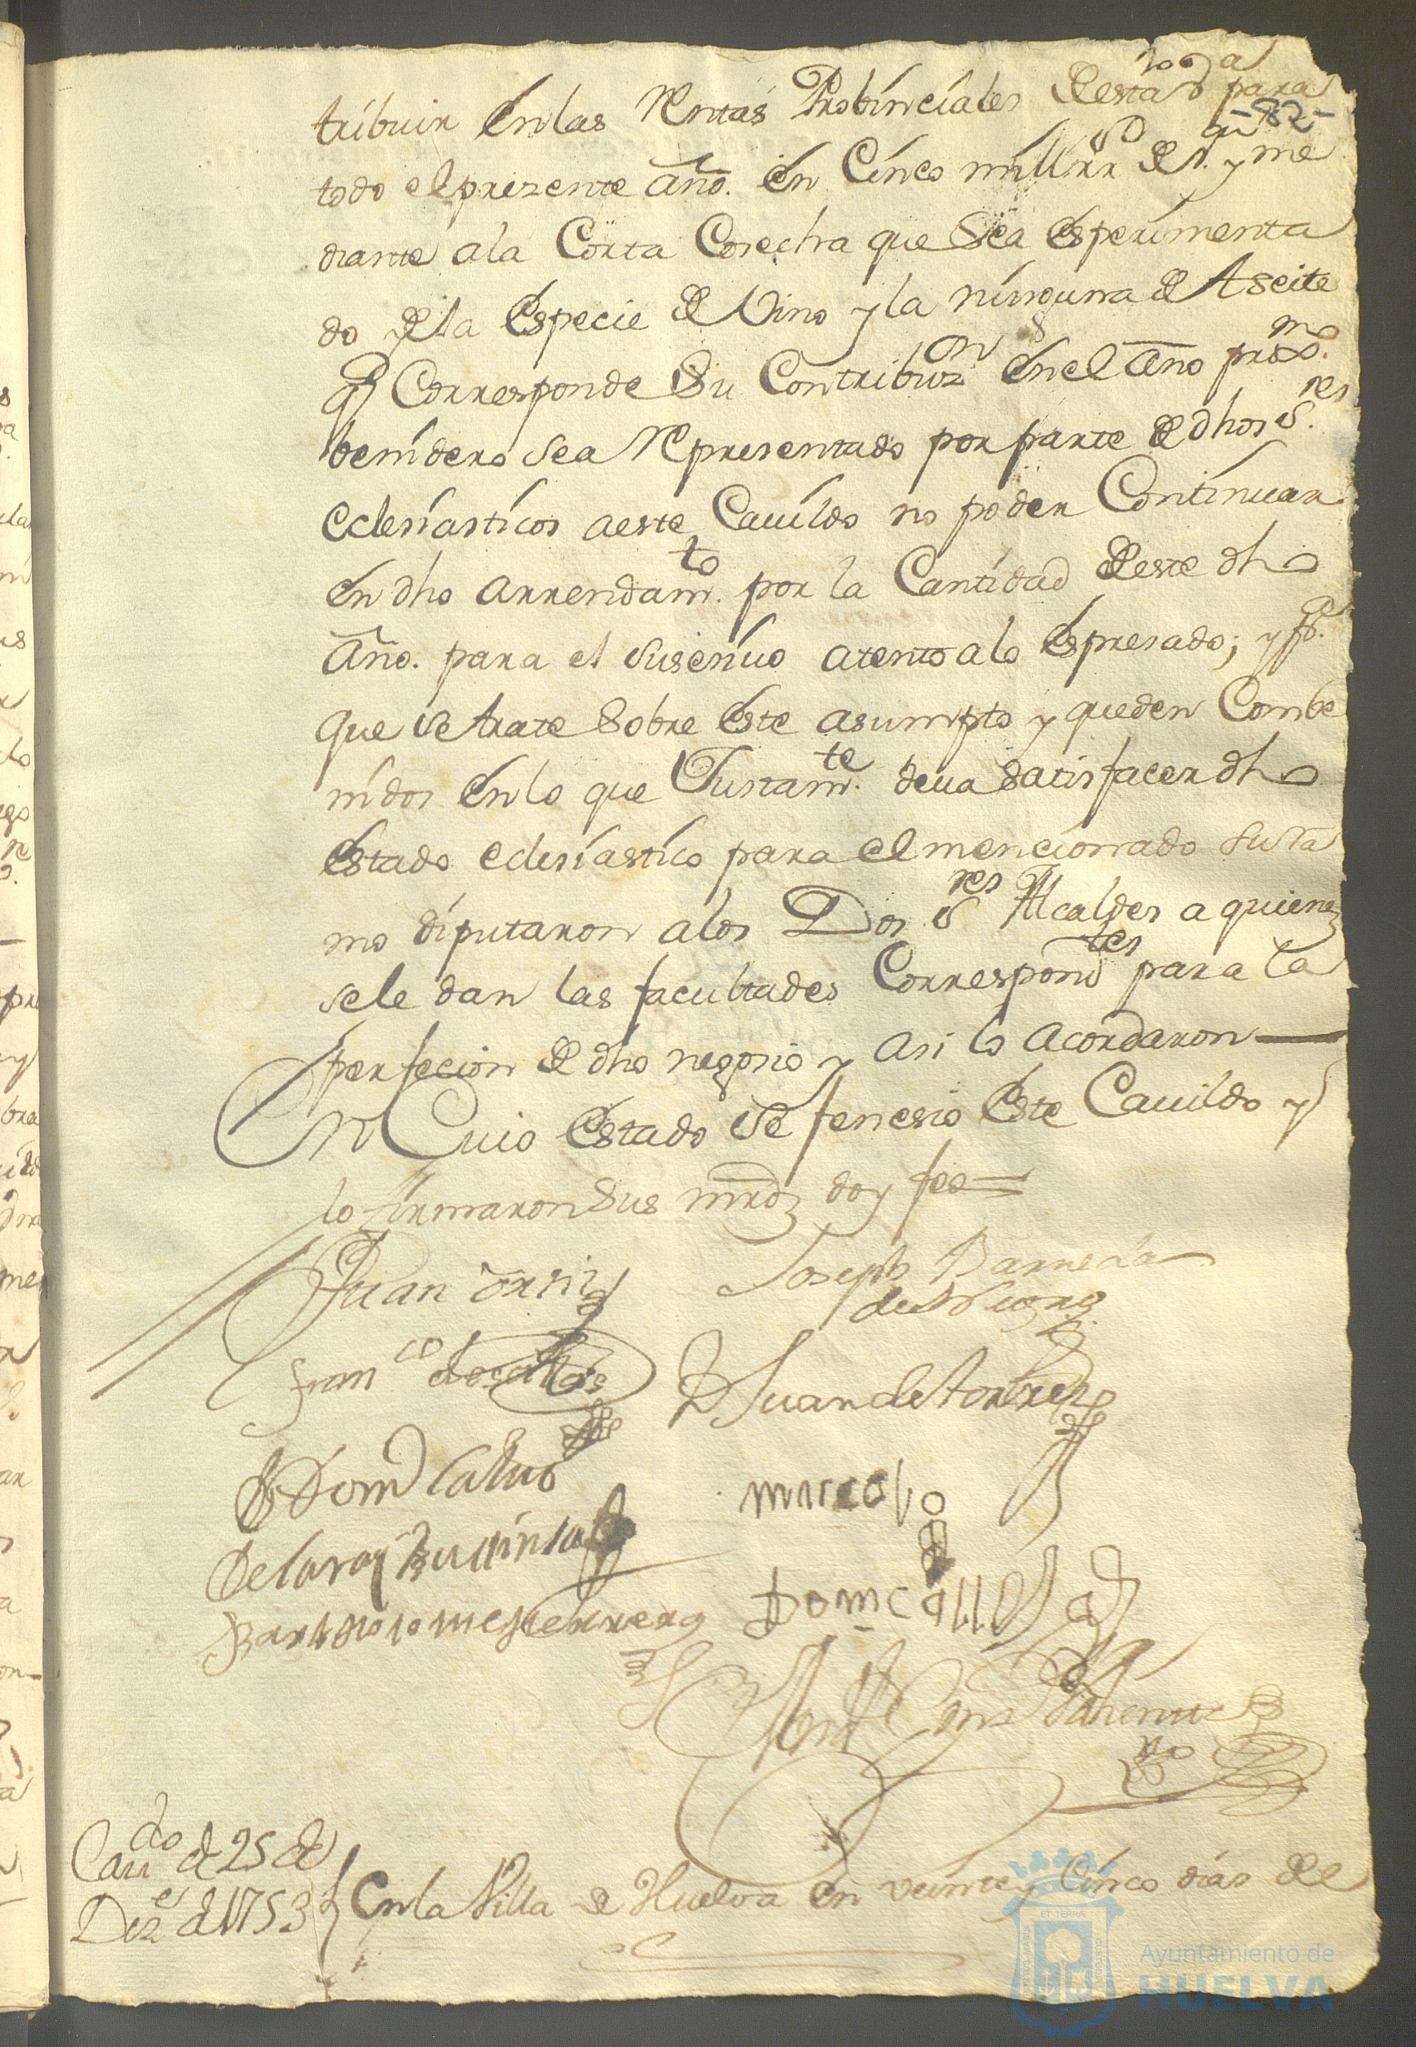 tribuir en las rentas Probinciales desta v.ª para
-82-
todo el prezente año. en Cinco mill rr.s de v.n y me
diante ala Corta Cosecha que sea esperimenta
do de la especie de Vino y la ninguna de Aseite
q Corresponde su Contribuz.on en el año prox.mo
benidero sea representado por parte de dhos s.res
eclesiasticos aeste Cauildo no poder Continuar
en dho arrendam.to por la Cantidad deste dho
año. para el susesiuo atento alo espresado; y p.a
que se trate sobre este asumpto y queden Combe
nidos en lo que Justam.te deua satisfacer dho
estado eclesiastico para el mencionado susta
mo diputaron alos Dos s.res Alcaldes a quienes
sele dan las facultades Correspond.tes para la
perfecion de dho negosio y asi lo acordaron
En Cuio estado se fenesio este Cauildo y
lo firmaron sus mrds doy fee
Juan Orti
Joseph Barreda
Fran.co
D Juan de Torres
D Dom Calvo
Bartholome Herrero
Dom
Cau.do de 25 de
Diz.e de 1753
En la Villa de Huelva en veinte y Cinco dias de el
Ayuntamiento de
HUELVA